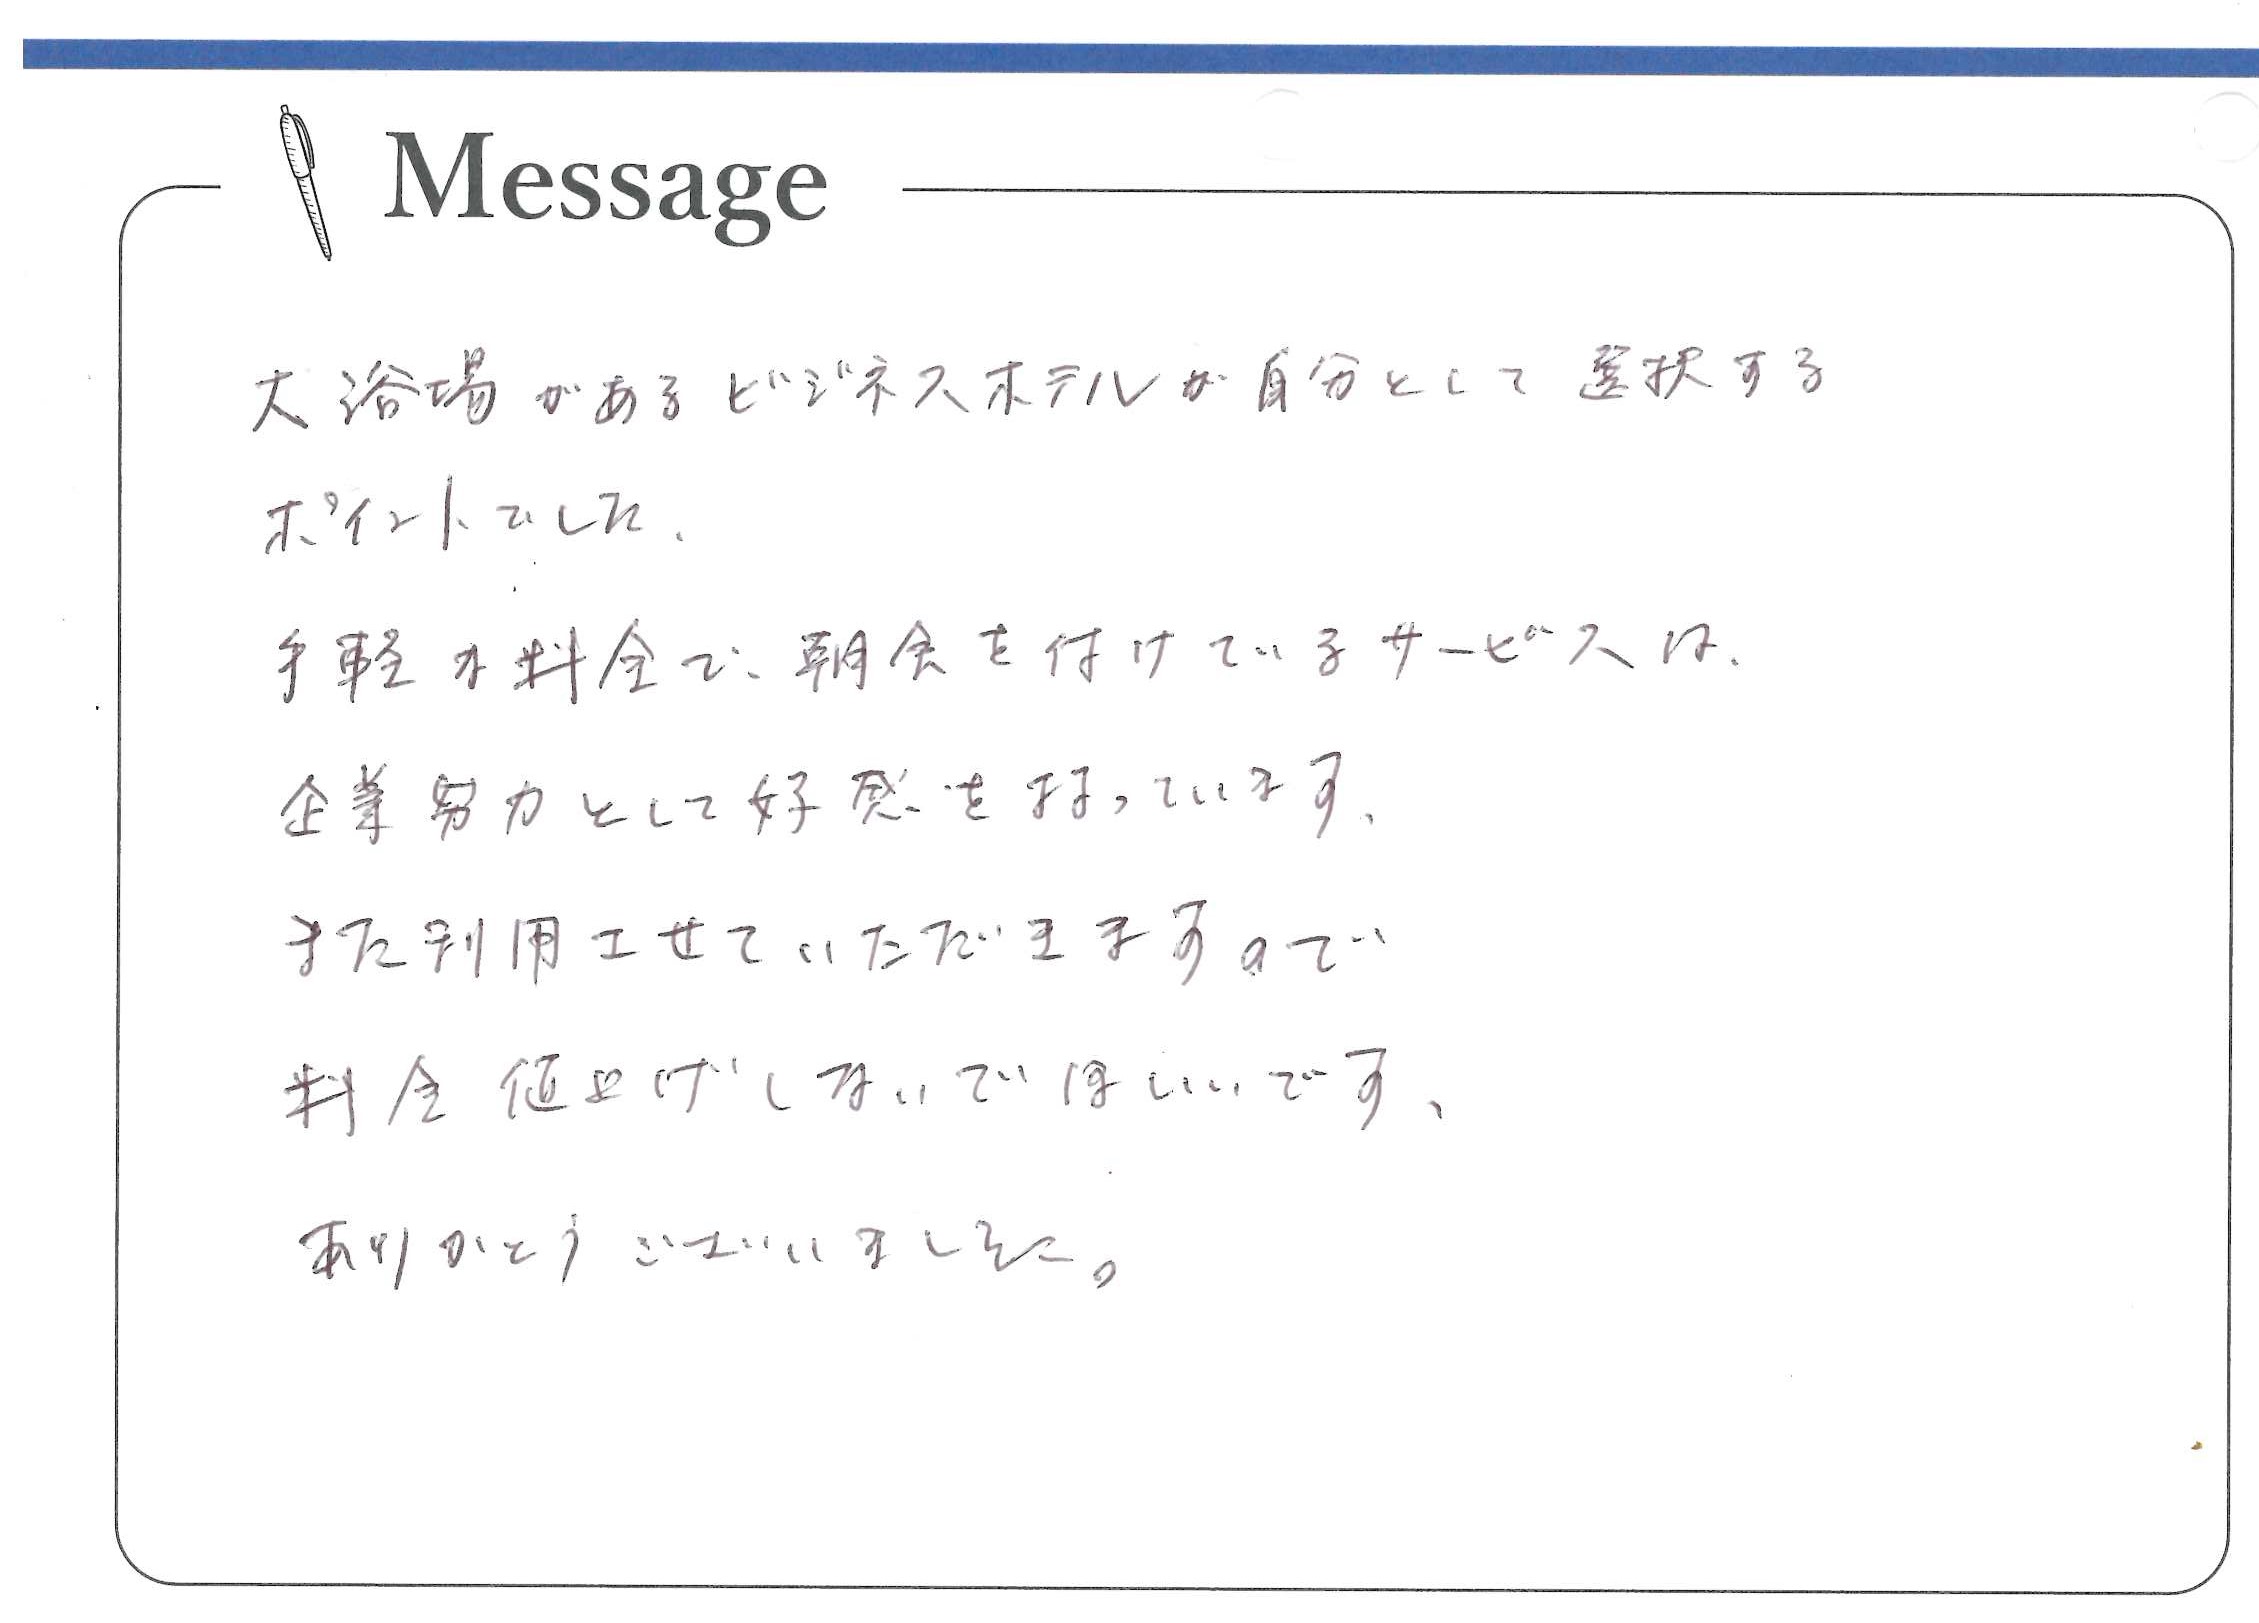 Message
大浴場があるビジネスホテルが自分として選択する
ポイントでした、
手軽な料金で、朝食を付けているサービスは、
企業努力として好感を持っています、
また利用させていただきますので
料金値上げしないでほしいです、
ありがとうございました。